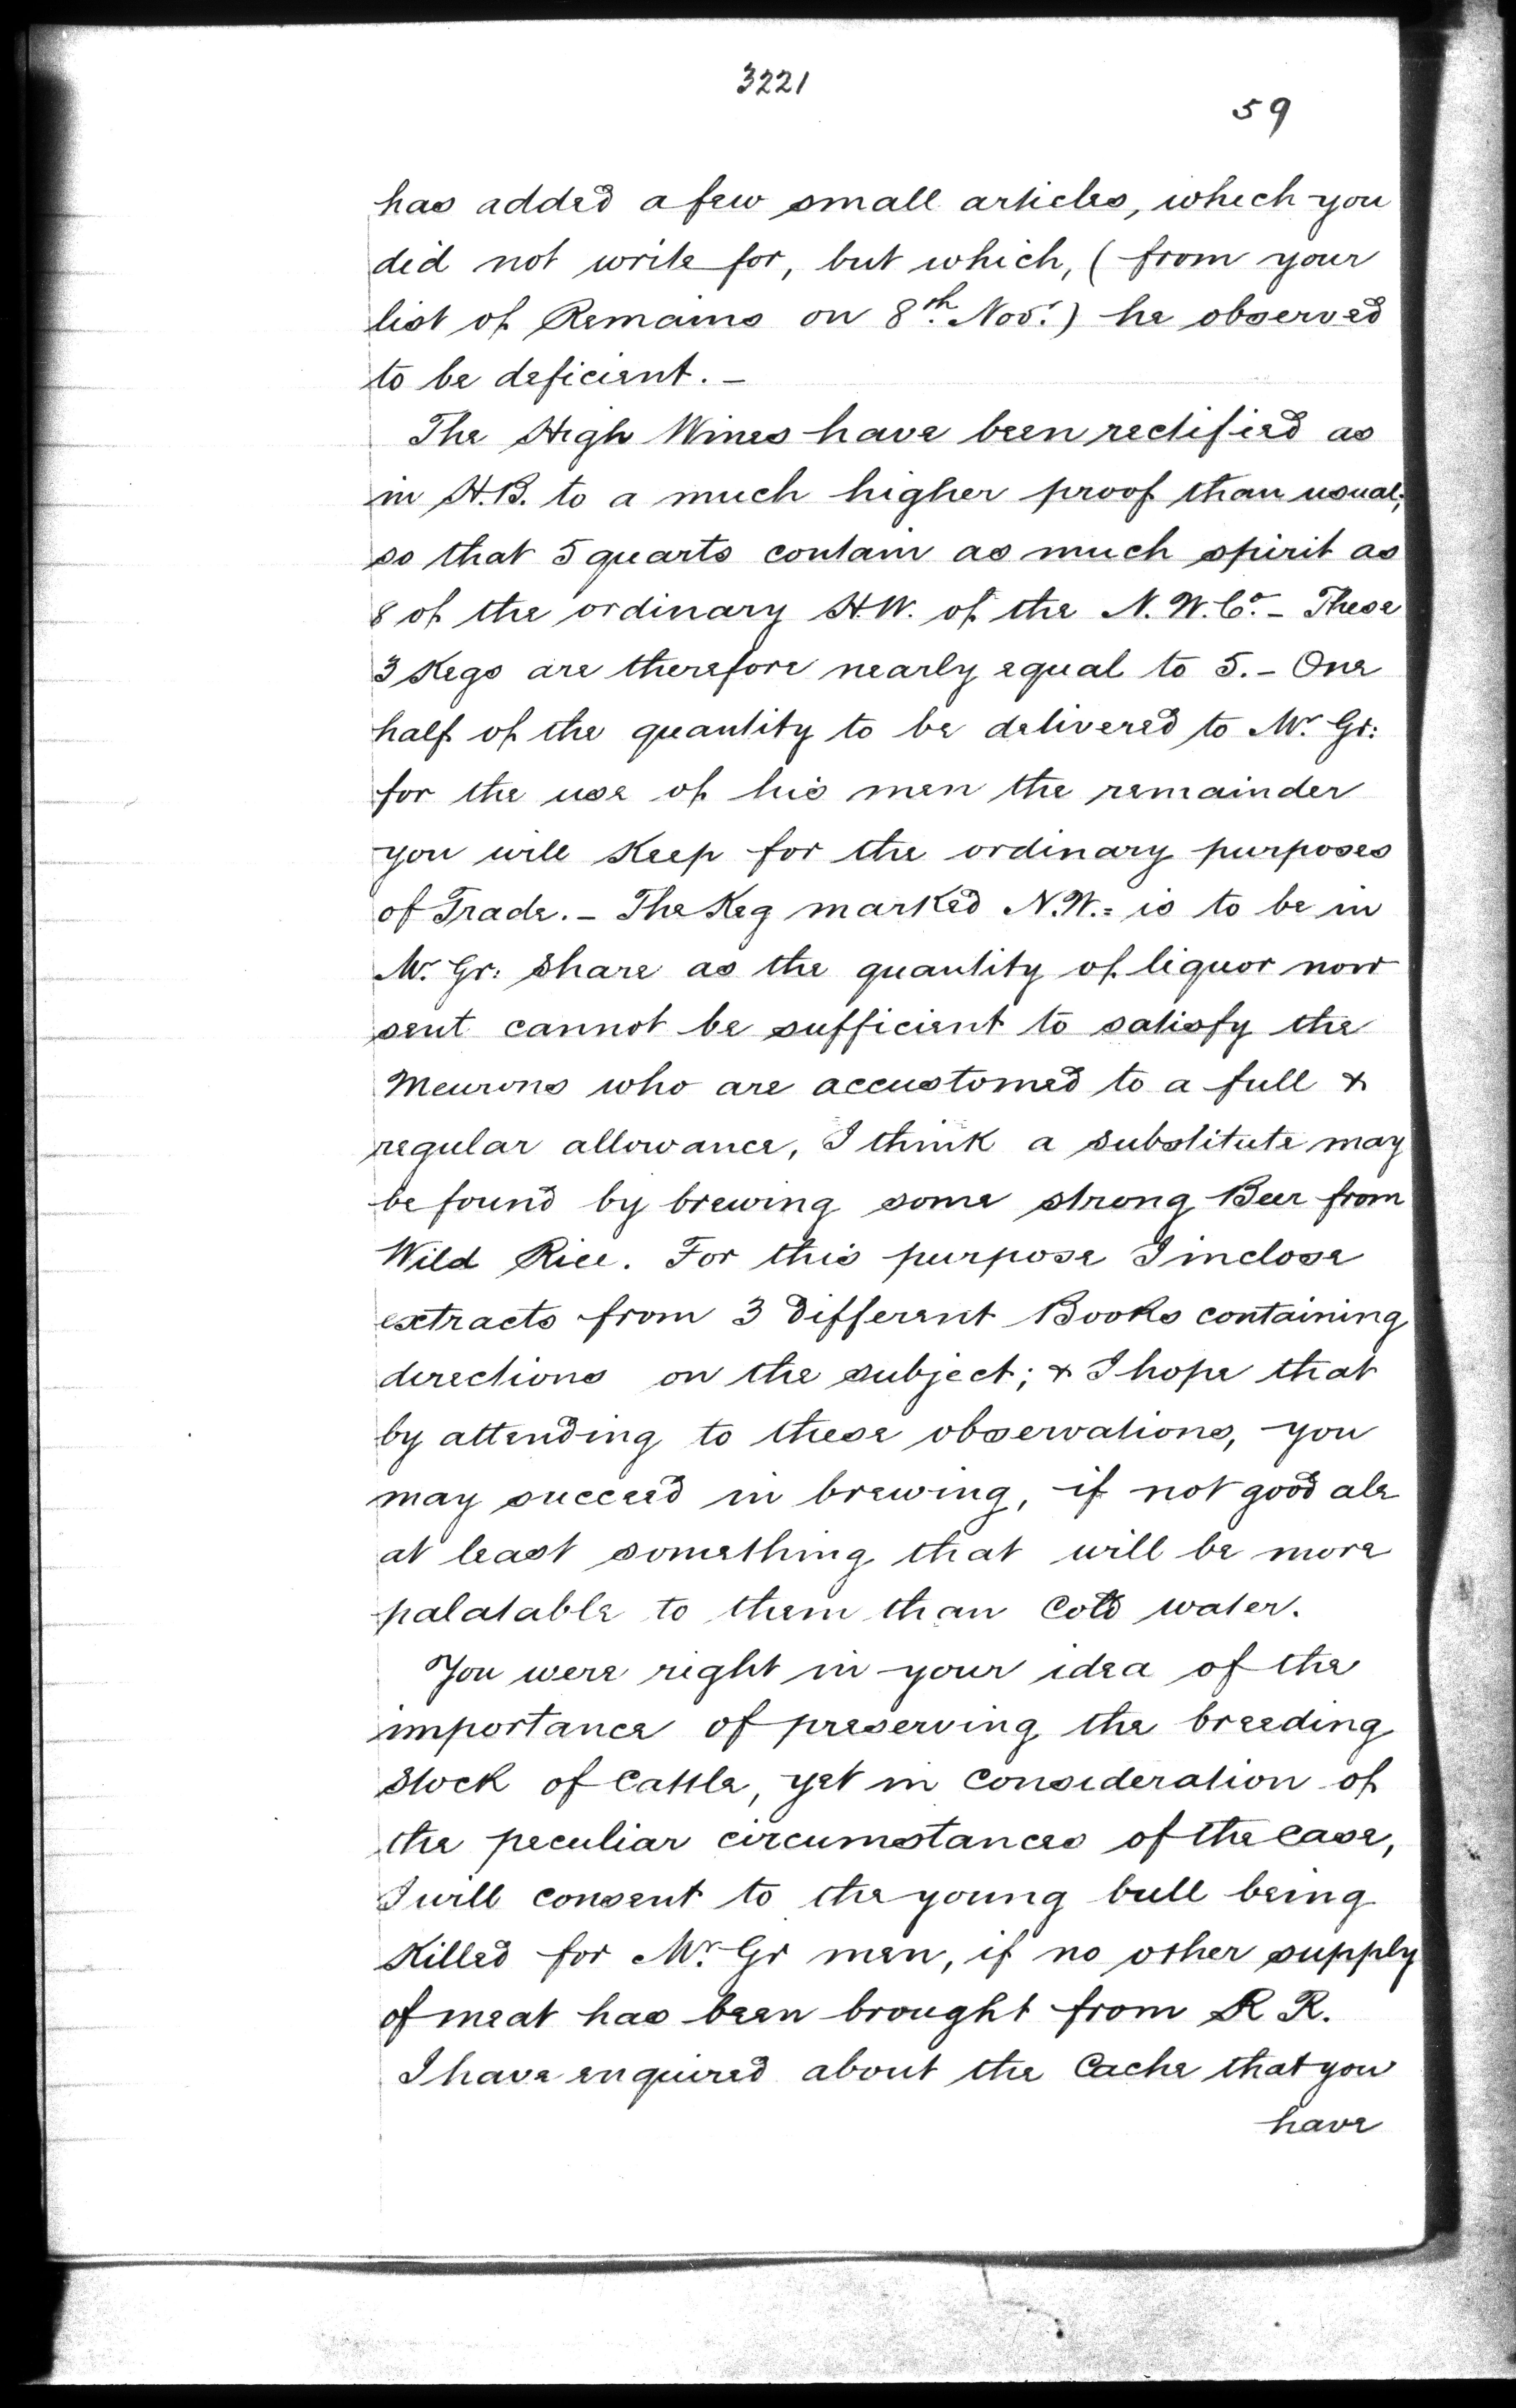 3221
59
has added a few small articles, which you
did not write for, but which, (from your
list of Remains on 8th. Nov.r) he observed
to be deficient. —
The High Wines have been rectified as
in H.B. to a much higher proof than usual;
so that 5 quarts contain as much spirit as
8 of the ordinary H.W. of the N.W.Co. — These
3 Kegs are therefore nearly equal to 5. — One
half of the quantity to be delivered to Mr. Gr:
for the use of his men the remainder
you will Keep for the ordinary purposes
of Trade. — The Keg marked N.W.= is to be in
Mr. Gr: Share as the quantity of liquor now
sent cannot be sufficient to satisfy the
Meurons who are accustomed to a full &
regular allowance, I think a substitute may
be found by brewing some strong Beer from
Wild Rice. For this purpose I inclose
extracts from 3 Different Books containing
directions on the subject; & I hope that
by attending to these observations, you
may succeed in brewing, if not good ale
at least something that will be more
palatable to them than Cold water.
You were right in your idea of the
importance of preserving the breeding
Stock of Cattle, yet in Consideration of
the peculiar circumstances of the case,
I will consent to the young bull being
Killed for Mr. Gr men, if no other supply
of meat has been brought from R R.
I have enquired about the Cache that you
have